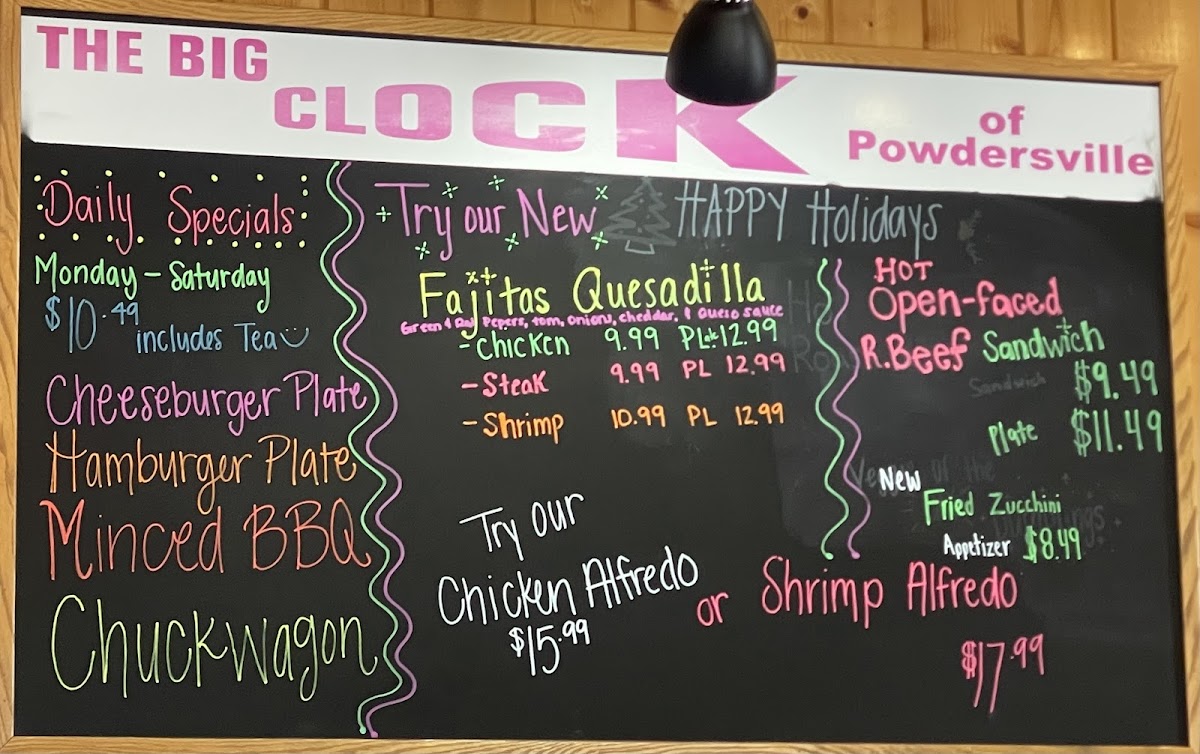 THE BIG
CLOCK
of
Powdersville
Daily Specials
Monday - Saturday
$10.49 includes Tea
Cheeseburger Plate
Hamburger Plate
Minced BBQ
Chuckwagon
Try our New
HAPPY Holidays
Fajitas Quesadilla
Green & Red Pepers, tom, onions, cheddar, & Queso sauce
- Chicken 9.99 PLate 12.99
- Steak 9.99 PL 12.99
- Shrimp 10.99 PL 12.99
HOT
Open-faced
R.Beef Sandwich
Sandwich $9.49
Plate $11.49
New
Fried Zucchini
Appetizer $8.49
Try our
Chicken Alfredo
$15.99
or Shrimp Alfredo
$17.99